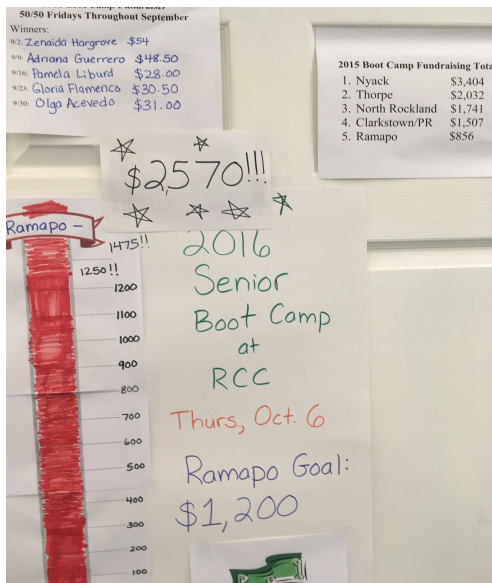 Boot Camp Fundraiser
50/50 Fridays Throughout September
Winners:
9/2: Zenaida Hargrove $54
9/9: Adriana Guerrero $48.50
9/16: Pamela Liburd $28.00
9/23: Gloria Flamenco $30.50
9/30: Olga Acevedo $31.00
2015 Boot Camp Fundraising Tota
1. Nyack $3,404
2. Thorpe $2,032
3. North Rockland $1,741
4. Clarkstown/PR $1,507
5. Ramapo $856
$2,570!!!
Ramapo –
1475!!
1250!!
1200
1100
1000
900
800
700
600
500
400
300
200
100
2016
Senior
Boot Camp
at
RCC
Thurs, Oct. 6
Ramapo Goal:
$1,200